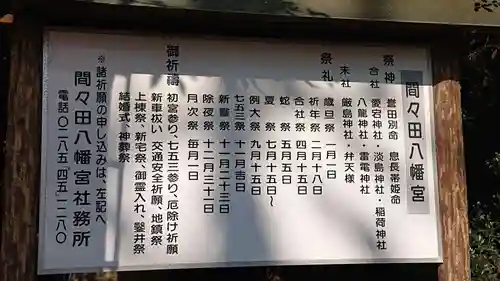 間々田八幡宮
祭神 誉田別命 息長帯姫命
合社 愛宕神社・淡島神社・稲荷神社
八龍神社・雷電神社
末社 厳島神社・弁天様
祭礼 歳旦祭 一月一日
祈年祭 二月十八日
合社祭 四月十五日
蛇祭 五月五日
夏祭 七月十五日〜
例大祭 九月十五日
七五三祭 十一月吉日
新嘗祭 十一月二十三日
除夜祭 十二月三十一日
月次祭 毎月一日
御祈禱 初宮参り、七五三参り、厄除け祈願
新車祓い 交通安全祈願、地鎮祭
上棟祭、新宅祭、御霊入れ、鑿井祭
結婚式、神葬祭
※諸祈願の申し込みは、左記へ
間々田八幡宮社務所
電話〇二八五 四五 一二八〇